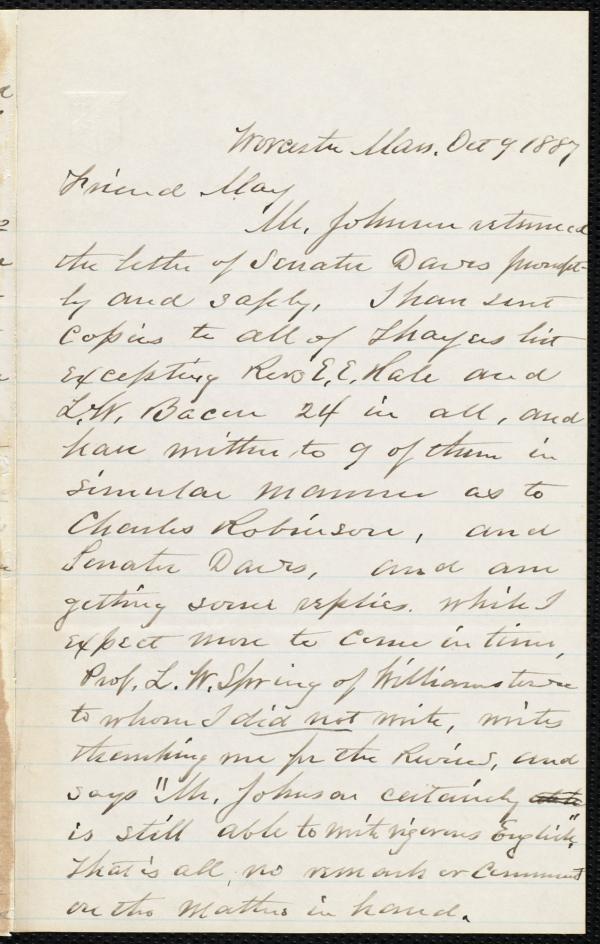 Worcester Mass. Oct 9 1887
Friend May
Mr. Johnson returned
the letter of Senator Dawes prompt-
ly and safely. I have sent
copies to all of Thayers list
excepting Revs E. E. Hale and
L. W. Bacon 24 in all, and
have written to 9 of them in
simular manner as to
Charles Robinson, and
Senator Dawes, and am
getting some replies. while I
expect more to come in time,
Prof. L. W. Spring of Williamstown
to whom I did not write, writes
thanking me for the Review, and
says "Mr. Johnson certainly
is still able to write vigorous English".
That is all, no remark or comment
on the matter in hand.